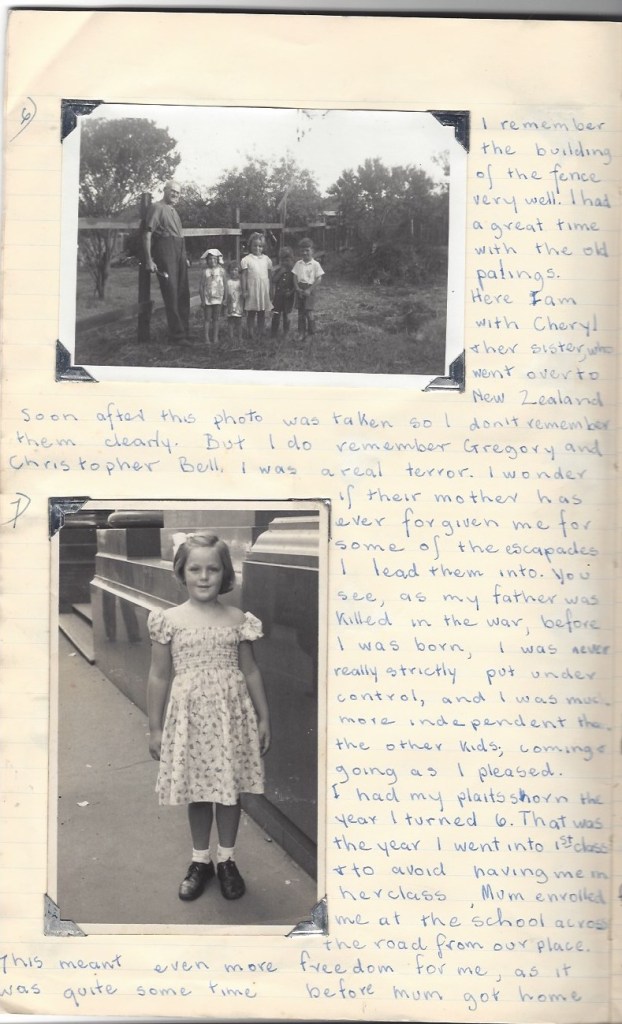 6)
I remember
the building
of the fence
very well. I had
a great time
with the old
palings.
Here I am
with Cheryl
& her sister, who
went over to
New Zealand
soon after this photo was taken so I don't remember
them clearly. But I do remember Gregory and
Christopher Bell. I was a real terror. I wonder
7)
if their mother has
ever forgiven me for
some of the escapades
I lead them into. You
see, as my father was
killed in the war, before
I was born, I was never
really strictly put under
control, and I was much
more independent tha
the other kids; coming &
going as I pleased.
I had my plaits shorn the
year I turned 6. That was
the year I went into 1st class
& to avoid having me in
her class, Mum enrolled
me at the school across
the road from our place.
This meant even more freedom for me, as it
was quite some time before Mum got home